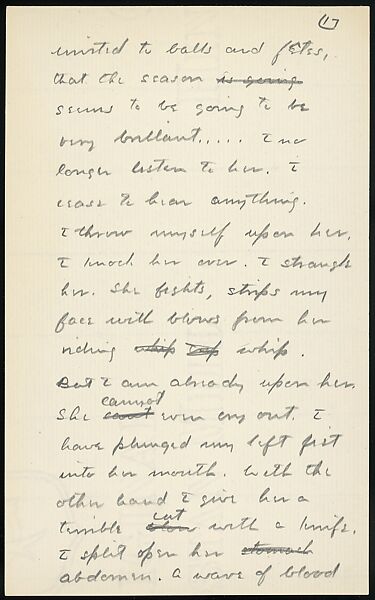 17
invited to balls and fêtes,
that the season is going
seems to be going to be
very brilliant..... I no
longer listen to her. I
cease to hear anything.
I throw myself upon her.
I knock her over. I strangle
her. She fights, strips my
face with blows from her
riding whip whip whip.
But I am already upon her.
cannot
She can't even cry out. I
have plunged my left fist
into her mouth. With the
other hand I give her a
cut
terrible blow with a knife.
I split open her stomach
abdomen. A wave of blood